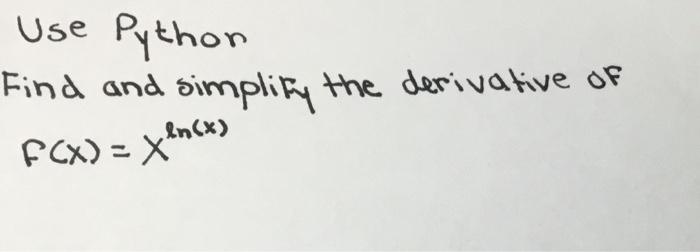 Use Python
Find and simplify the derivative of
f(x) = x^ln(x)